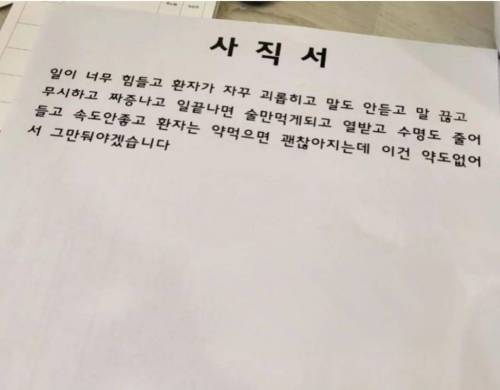 사 직 서
일이 너무 힘들고 환자가 자꾸 괴롭히고 말도 안듣고 말 끊고
무시하고 짜증나고 일끝나면 술만먹게되고 열받고 수명도 줄어
들고 속도안좋고 환자는 약먹으면 괜찮아지는데 이건 약도없어
서 그만둬야겠습니다